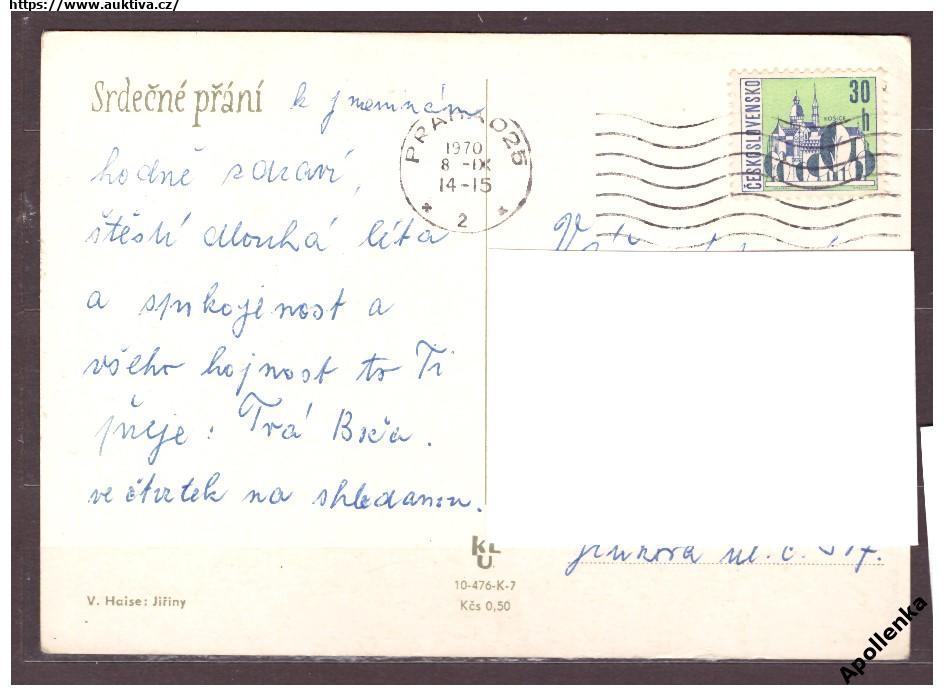 https://www.auktiva.cz/
Srdečné přání k jmeninám
hodně zdraví,
štěstí dlouhá léta
a spokojenost a
všeho hojnost to Ti
přeje: Tvá Bořa.
ve čtvrtek na shledanou.
PRAHA 025
1970
8 -IX
14-15
2
ČESKOSLOVENSKO
30
h
KOŠICE
ul. č.
KLU
10-476-K-7
Kčs 0,50
V. Haise: Jiřiny
Apollenka